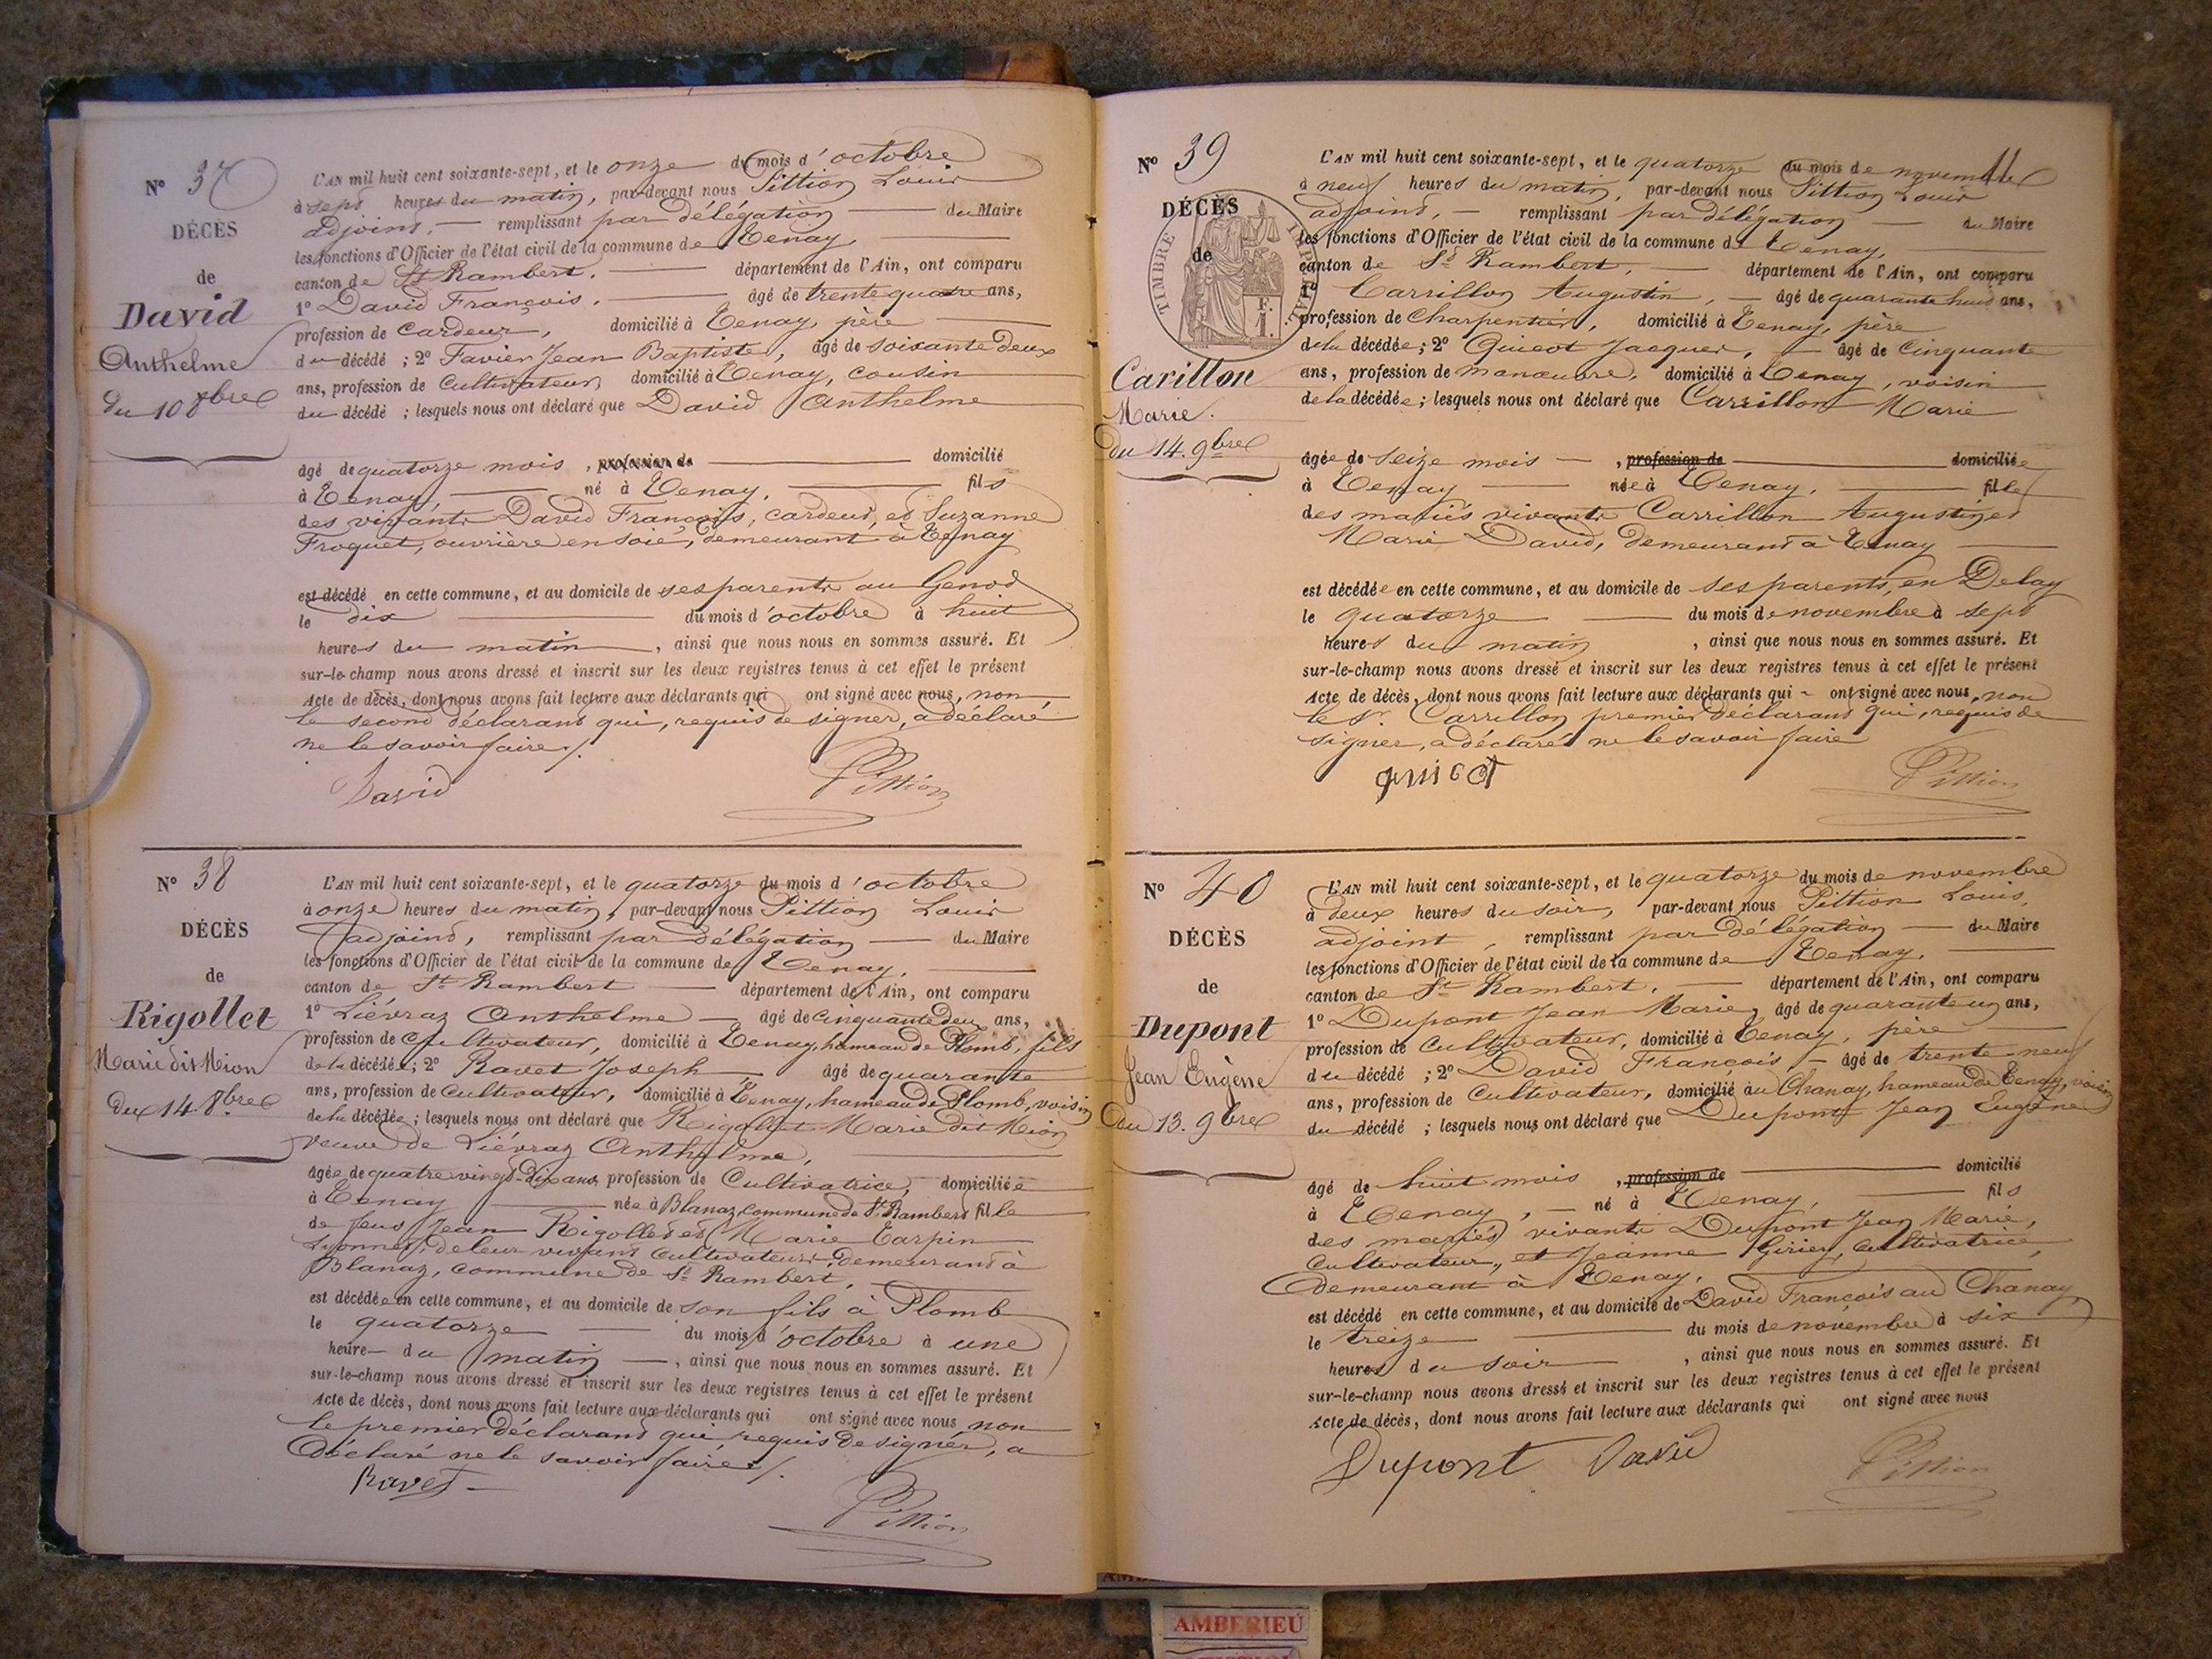 N° 37
DÉCÈS
de
David
Anthelme
du 10 8bre
L'AN mil huit cent soixante-sept, et le onze du mois d'octobre
à sept heures du matin, par-devant nous Pittion Louis
adjoint, — remplissant par délégation — du Maire
les fonctions d'Officier de l'état civil de la commune de Tenay,
canton de St Rambert. — département de l'Ain, ont comparu
1° David François. — âgé de trente quatre ans,
profession de cardeur, domicilié à Tenay, père
du décédé ; 2° Favier Jean Baptiste, âgé de soixante deux
ans, profession de Cultivateur, domicilié à Tenay, cousin
du décédé ; lesquels nous ont déclaré que David Anthelme
âgé de quatorze mois, profession de — domicilié
à Tenay, — né à Tenay, — fils
des vivants David François, cardeur, et Suzanne
Froquet, ouvrière en soie, demeurant à Tenay
est décédé en cette commune, et au domicile de ses parents au Genod
le dix — du mois d'octobre à huit
heures du matin —, ainsi que nous nous en sommes assuré. Et
sur-le-champ nous avons dressé et inscrit sur les deux registres tenus à cet effet le présent
Acte de décès, dont nous avons fait lecture aux déclarants qui ont signé avec nous, non
le second déclarant qui, requis de signer, a déclaré
ne le savoir faire./.
David Pittion
N° 38
DÉCÈS
de
Rigollet
Marie dit Mion
du 14. 8bre
L'AN mil huit cent soixante-sept, et le quatorze du mois d'octobre
à onze heures du matin, par-devant nous Pittion Louis
adjoint, remplissant par délégation — du Maire
les fonctions d'Officier de l'état civil de la commune de Tenay,
canton de St Rambert — département de l'Ain, ont comparu
1° Liévraz Anthelme — âgé de cinquante deux ans,
profession de Cultivateur, domicilié à Tenay, hameau de Plomb, fils
de la décédée; 2° Ravet Joseph âgé de quarante
ans, profession de Cultivateur, domicilié à Tenay, hameau de Plomb, voisin
de la décédée ; lesquels nous ont déclaré que Rigollet Marie dit Mion
veuve de Liévraz Anthelme,
âgée de quatre vingt-dix ans, profession de Cultivatrice, domiciliée
à Tenay — née à Blanaz, commune de St Rambert fille
de feus Jean Rigollet et Marie Carpin
Lyonnet, de leur vivant cultivateurs, demeurant à
Blanaz, commune de St Rambert.
est décédée en cette commune, et au domicile de son fils à Plomb
le quatorze — du mois d'octobre à une
heure — du matin —, ainsi que nous nous en sommes assuré. Et
sur-le-champ nous avons dressé et inscrit sur les deux registres tenus à cet effet le présent
Acte de décès, dont nous avons fait lecture aux déclarants qui ont signé avec nous non
le premier déclarant qui requis de signer, a
déclaré ne le savoir faire./.
Ravet — Pittion
11
N° 39
DÉCÈS
de
TIMBRE IMPÉRIAL
1 F.
Carillon
Marie.
du 14. 9bre
L'AN mil huit cent soixante-sept, et le quatorze du mois de novembre
à neuf heures du matin, par-devant nous Pittion Louis
adjoint, — remplissant par délégation — du Maire
les fonctions d'Officier de l'état civil de la commune de Tenay,
canton de St Rambert, — département de l'Ain, ont comparu
1° Carrillon Augustin, — âgé de quarante huit ans,
profession de Charpentier, domicilié à Tenay, père
de la décédée; 2° Quicot Jacques, — âgé de Cinquante
ans, profession de manœuvre, domicilié à Tenay, voisin
de la décédée; lesquels nous ont déclaré que Carrillon Marie
âgée de seize mois —, profession de — domiciliée
à Tenay — née à Tenay, — fille
des mariés vivants Carrillon Augustin et
Marie David, demeurant à Tenay —
est décédée en cette commune, et au domicile de ses parents, en Delay
le quatorze — du mois de novembre à sept
heures du matin, ainsi que nous nous en sommes assuré. Et
sur-le-champ nous avons dressé et inscrit sur les deux registres tenus à cet effet le présent
Acte de décès, dont nous avons fait lecture aux déclarants qui - ont signé avec nous, non
le Sr. Carrillon premier déclarant qui, requis de
signer, a déclaré ne le savoir faire
quicot Pittion
N° 40
DÉCÈS
de
Dupont
Jean Eugène
du 13. 9bre
L'AN mil huit cent soixante-sept, et le quatorze du mois de novembre
à deux heures du soir, par-devant nous Pittion Louis,
adjoint, remplissant par délégation — du Maire
les fonctions d'Officier de l'état civil de la commune de Tenay,
canton de St Rambert. — département de l'Ain, ont comparu
1° Dupont Jean Marie, âgé de quarante un ans,
profession de Cultivateur, domicilié à Tenay, père
du décédé ; 2° David François, — âgé de trente-neuf
ans, profession de Cultivateur, domicilié au Chanay, hameau de Tenay, voisin
du décédé ; lesquels nous ont déclaré que Dupont Jean Eugène
âgé de huit mois, profession de — domicilié
à Tenay, — né à Tenay, — fils
des mariés vivants Dupont Jean Marie,
cultivateur, et Jeanne Girier, cultivatrice,
demeurant à Tenay.
est décédé en cette commune, et au domicile de David François au Chanay
le treize — du mois de novembre à six
heures du soir, ainsi que nous nous en sommes assuré. Et
sur-le-champ nous avons dressé et inscrit sur les deux registres tenus à cet effet le présent
Acte de décès, dont nous avons fait lecture aux déclarants qui ont signé avec nous
Dupont David Pittion
AMBERIEU